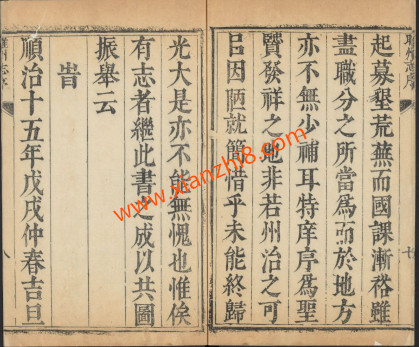 起募墾荒蕪而國課漸裕雖
盡職分之所當爲而於地方
亦不無少補耳特庠序爲聖
賢發祥之地非若州治之可
因陋就簡惜乎未能終歸
光大是亦不能無愧也惟俟
有志者繼此書之成以共圖
振舉云
旹
順治十五年戊戌仲春吉旦
州志序
七
八
www.xianzhi8.com